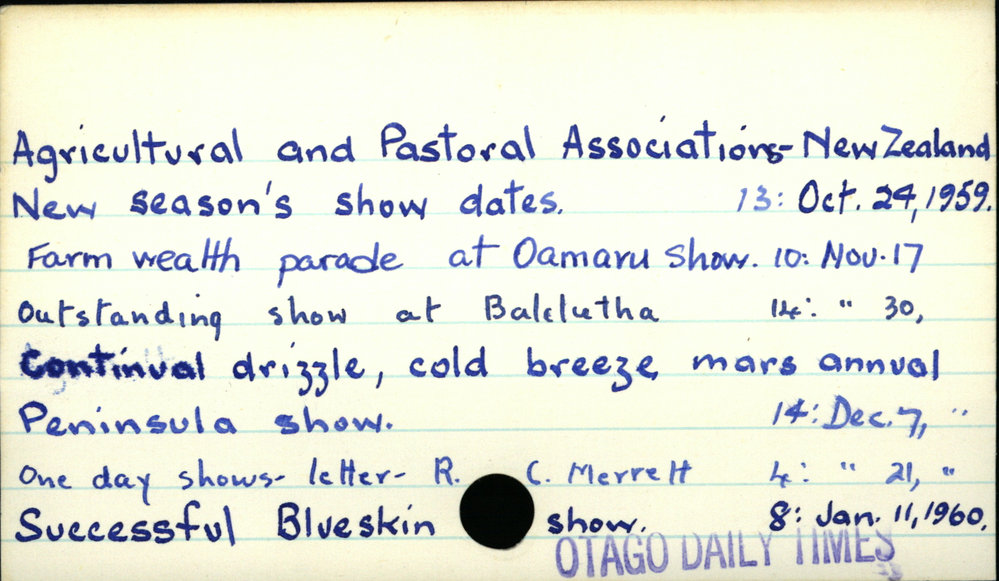 Agricultural and Pastoral Associations - New Zealand
New season's show dates. 13: Oct. 24, 1959.
Farm wealth parade at Oamaru Show. 10: Nov. 17
Outstanding show at Balclutha 14: " 30,
Continual drizzle, cold breeze mars annual
Peninsula show. 14: Dec. 7, "
One day shows - letter - R. C. Merrett 4: " 21, "
Successful Blueskin show. 8: Jan. 11, 1960.
OTAGO DAILY TIMES